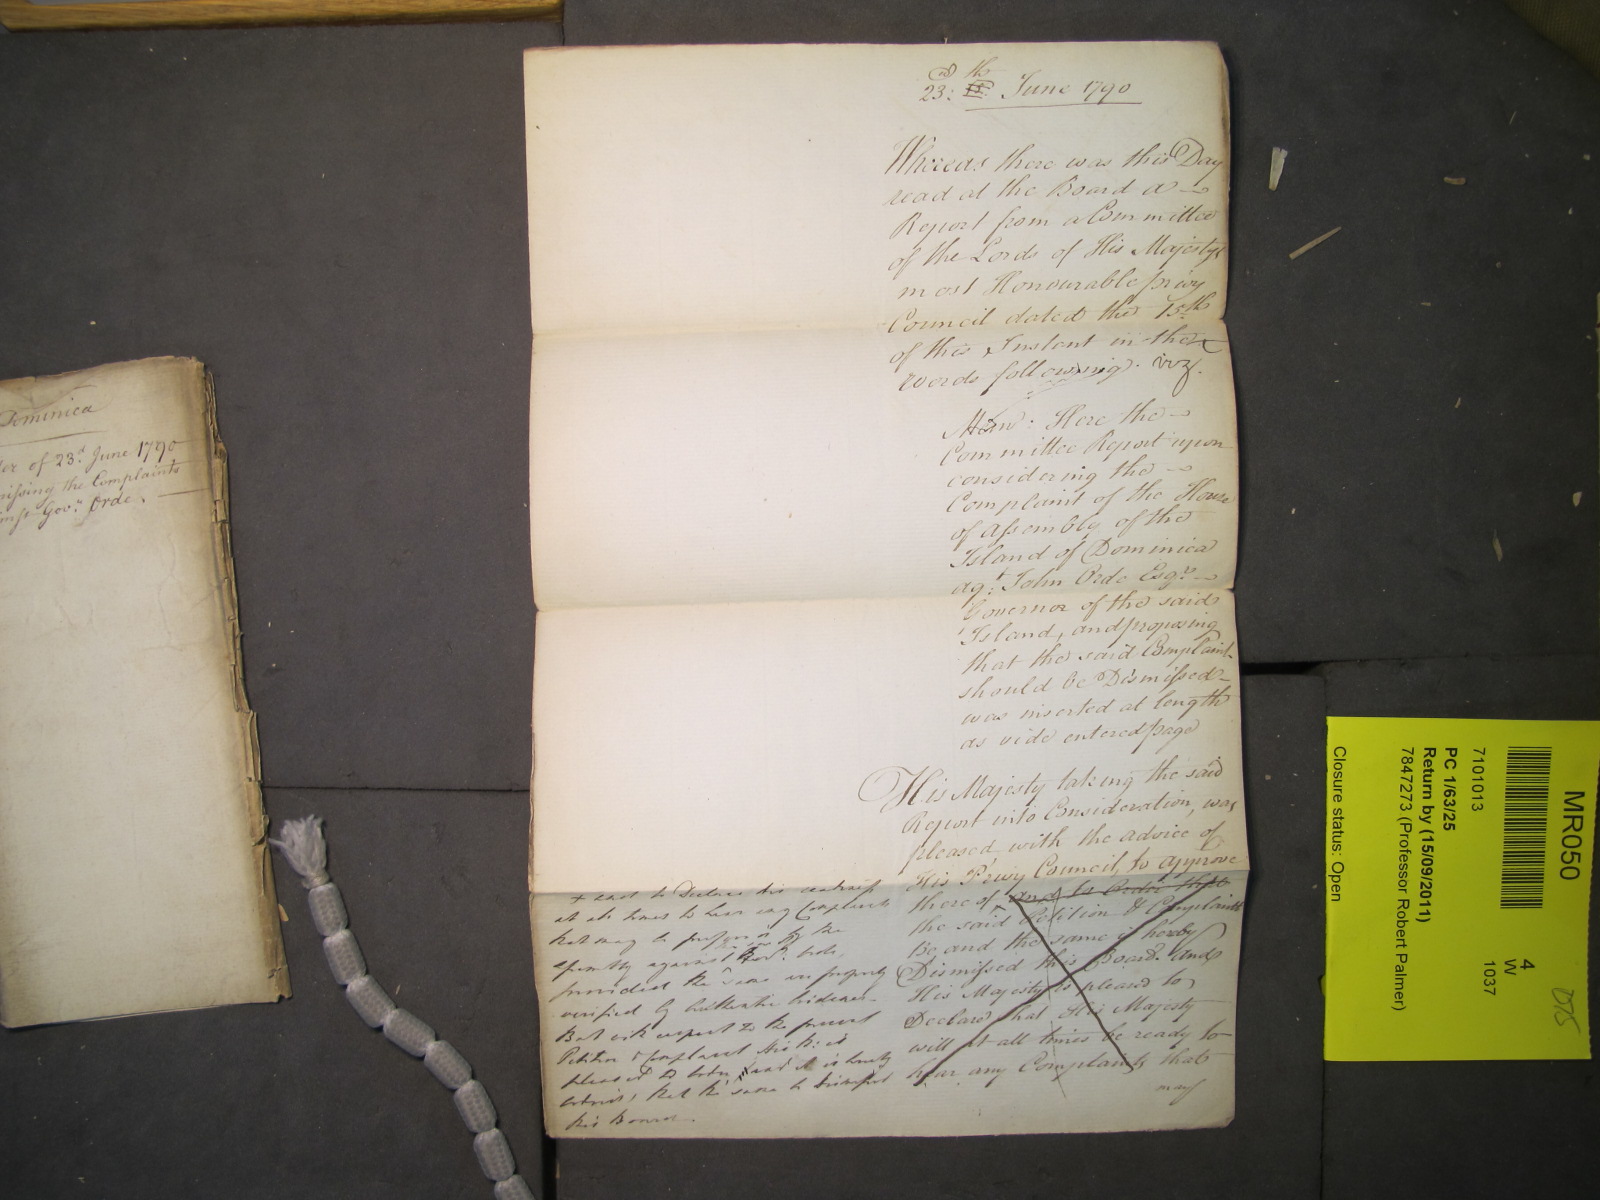 Dominica
of 23d June 1790
the Complaints
Govr. Orde.
23d: June 1790
Whereas there was this Day
read at the Board a
Report from a Committee
of the Lords of His Majestys
most Honourable privy
Council dated the 15th
of this Instant in the
Words following. viz.
Mem: Here the
Committee Report upon
considering the
Complaint of the House
of Assembly of the
Island of Dominica
agt. John Orde Esqre.
Governor of the said
Island, and proposing
that the said Complaint
should be Dismissed
was inserted at length
as vide entered page
His Majesty taking the said
Report into Consideration, was
pleased with the advice of
His Privy Council, to approve
thereof and to Order that
the said Petition & Complaint
Be and the same is hereby
Dismissed this Board. And
His Majesty is pleased to
Declare that His Majesty
will at all times be ready to
hear any Complaints that
may
+ and to Declare his readiness
at all times to hear any Complaints
that may be by the
Assembly against Govr. Orde,
provided the same are properly
verified by Authentic Evidence
But with respect to the present
Petition & Complaint His M: is
pleased to order, and it is hereby
ordered, that the same be dismissed
this Board.
MR050
7101013
4
W
1037
PC 1/63/25
Return by (15/09/2011)
7847273 (Professor Robert Palmer)
Closure status: Open